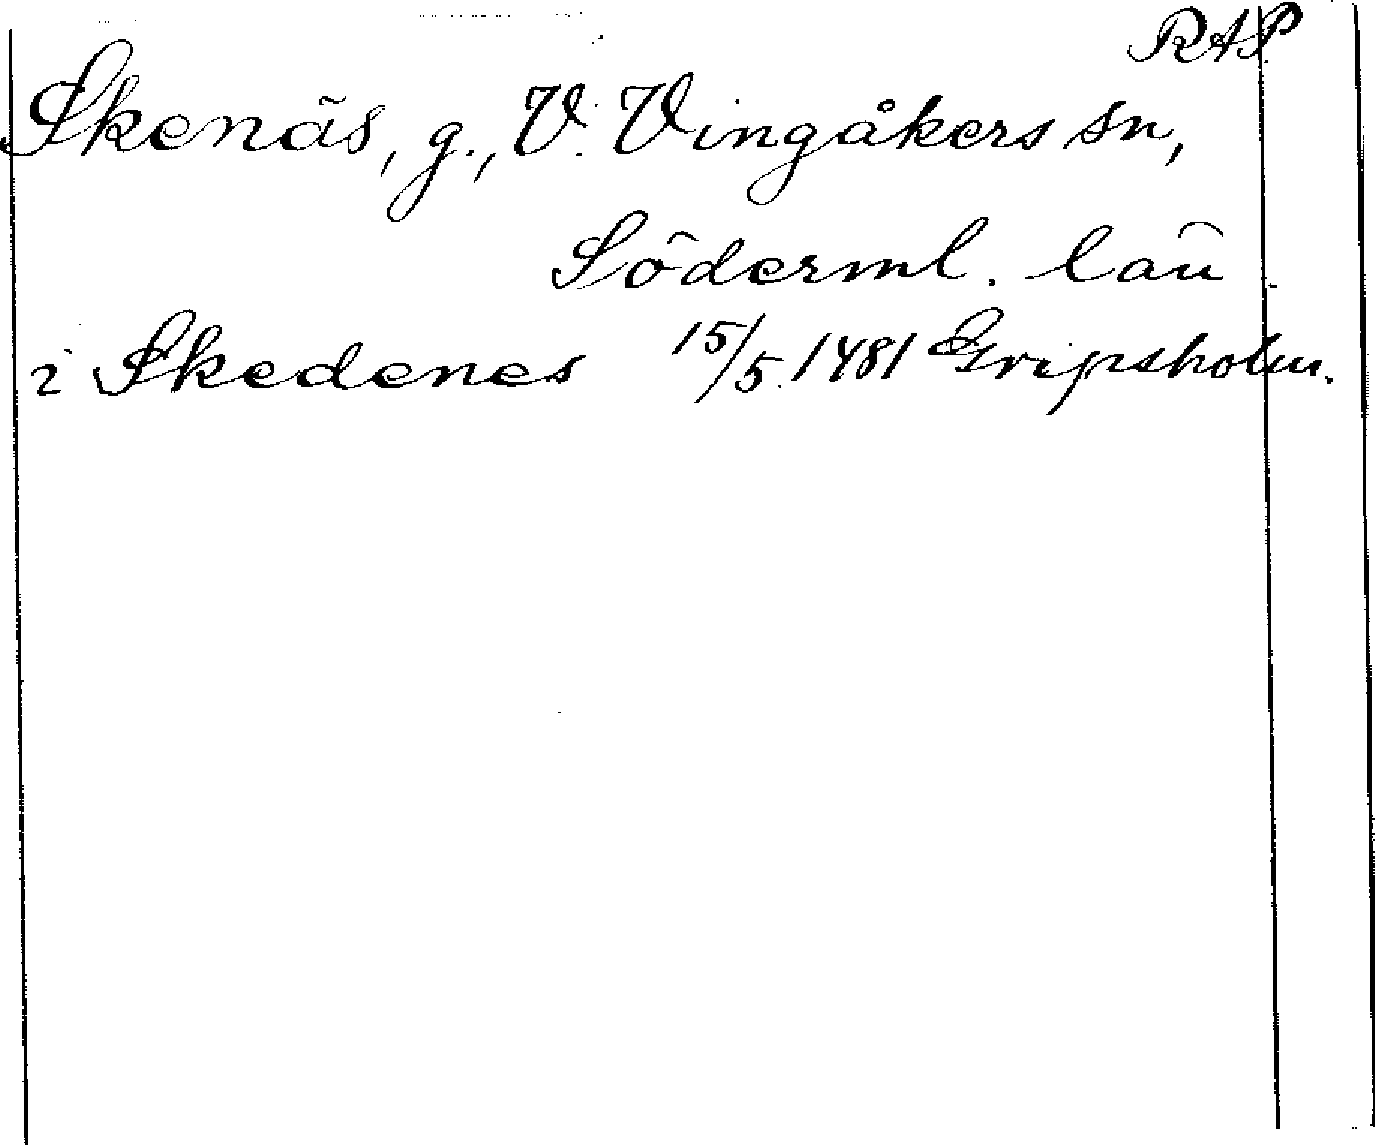 RAP.
Skenäs, g., V. Vingåkers sn,
Söderml. län
i Skedenes 15/5. 1481 Gripsholm.